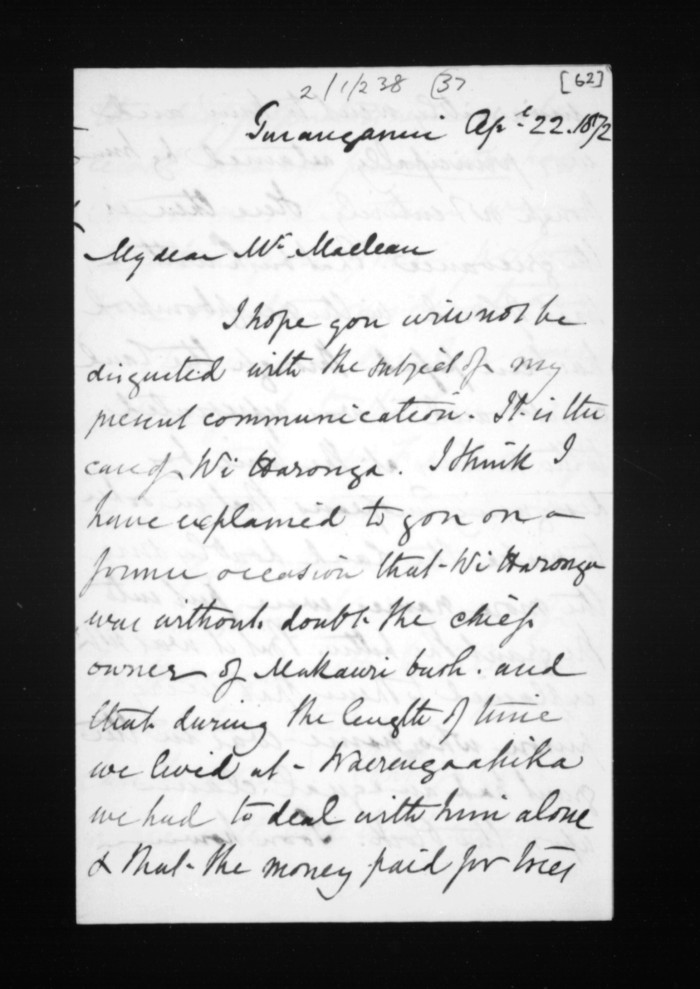 2/1/238 (37 [62]
Turanganui Apl 22. 1872
My dear Mr Maclean
I hope you will not be
disgusted with the subject of my
present communication. It is the
case of Wi Haronga. I think I
have explained to you on a
former occasion that Wi Haronga
was without doubt the chief
owner of Makauri bush. and
that during the length of time
we lived at Waerengaahika
we had to deal with him alone
& that the money paid for trees